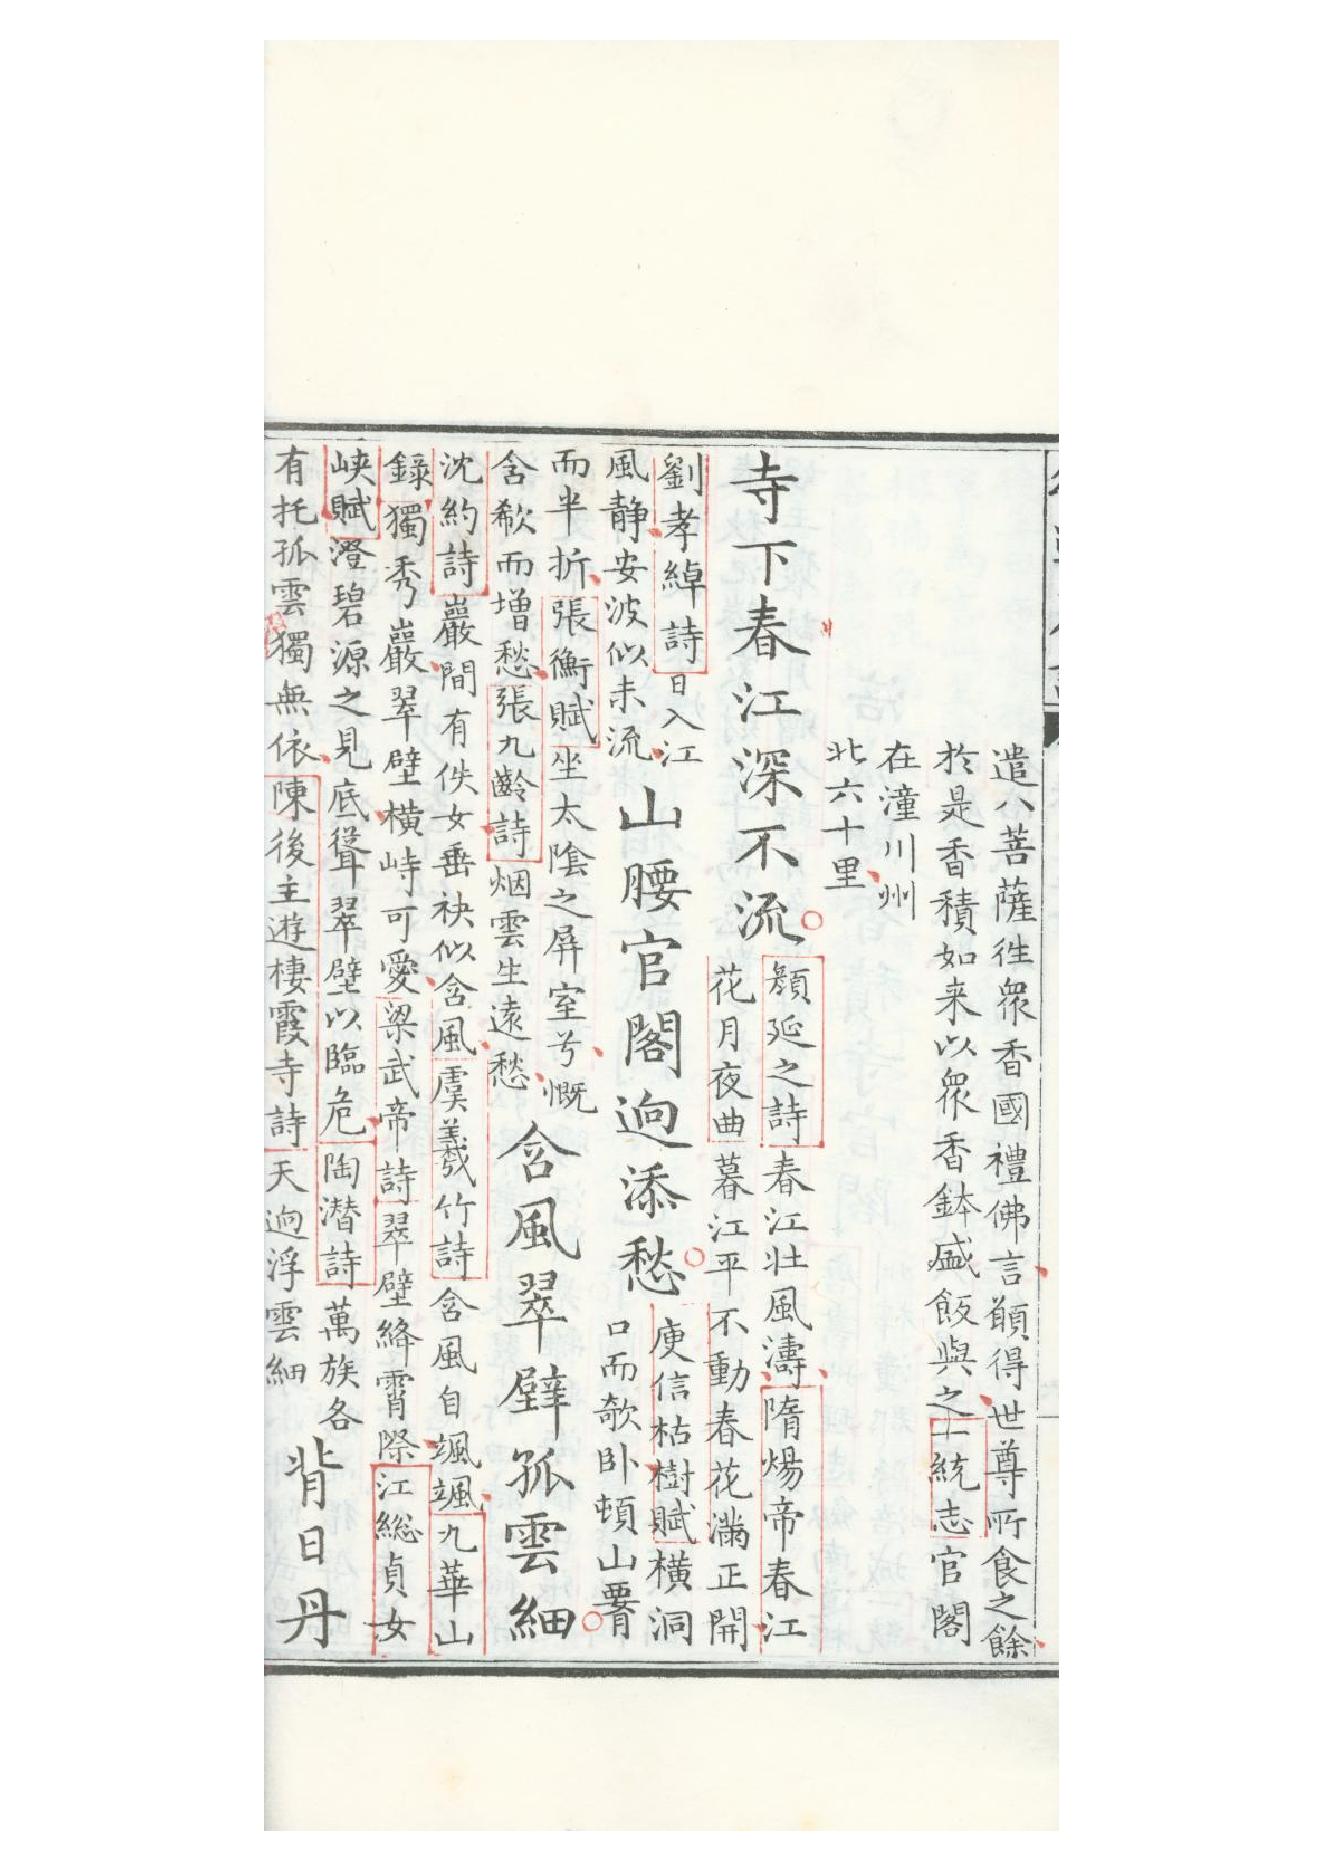 遣八菩薩徃眾香國禮佛言願得世尊所食之餘
於是香積如来以眾香鉢盛飯與之一統志官閣
在潼川州
北六十里
寺下春江深不流
顏延之詩春江壯風濤隋煬帝春江
花月夜曲暮江平不動春花滿正開
劉孝綽詩日入江
風静安波似未流
山腰官閣迥添愁
庾信枯樹賦橫洞
口而欹卧頓山腰
而半折張衡賦坐太陰之屏室兮慨
含欷而增愁張九齡詩烟雲生遠愁
含風翠壁孤雲細
沈約詩巖間有佚女垂袂似含風虞羲竹詩含風自颯颯九華山
錄獨秀巖翠壁橫峙可愛梁武帝詩翠壁絳霄際江総貞女
峡賦澄碧源之見底聳翠壁以臨危陶潛詩萬族各
有托孤雲獨無依陳後主遊棲霞寺詩天迥浮雲細
背日丹